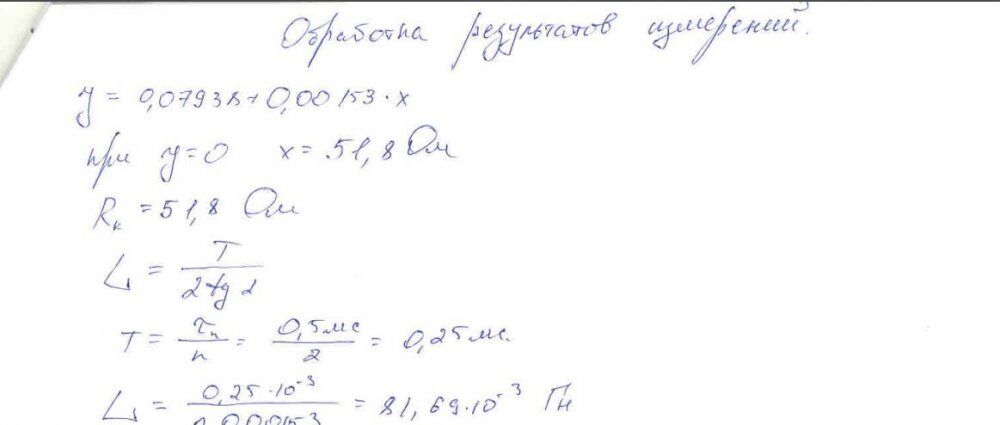 Обработка результатов измерений.
y = 0,07931+0,00153·x
при y=0 x=51,8 Ом
Rк =51,8 Ом
L = T / 2 tg α
T = τп / n = 0,5мс / 2 = 0,25мс.
L = 0,25·10⁻³ / 0,00153 = 81,69·10⁻³ Гн